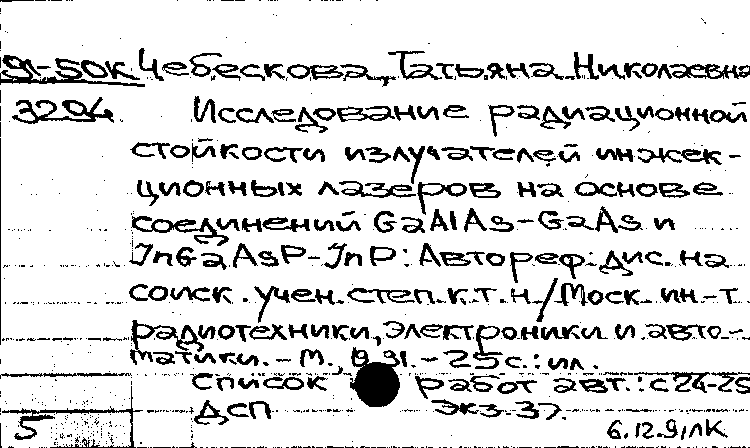 91-50К Чебескова, Татьяна Николаевна
3204 Исследование радиационной
стойкости излучателей инжек-
ционных лазеров на основе
соединений GaAlAs-GaAs и
InGaAsP-InP: Автореф. дис. на
соиск. учен. степ. к.т.н/Моск. ин-т
радиотехники, электроники и авто-
матики. - М., 1991. - 25 с.: ил.
Список работ авт.: с 24-25
ДСП Экз. 37.
5 6.12.91 ЛК